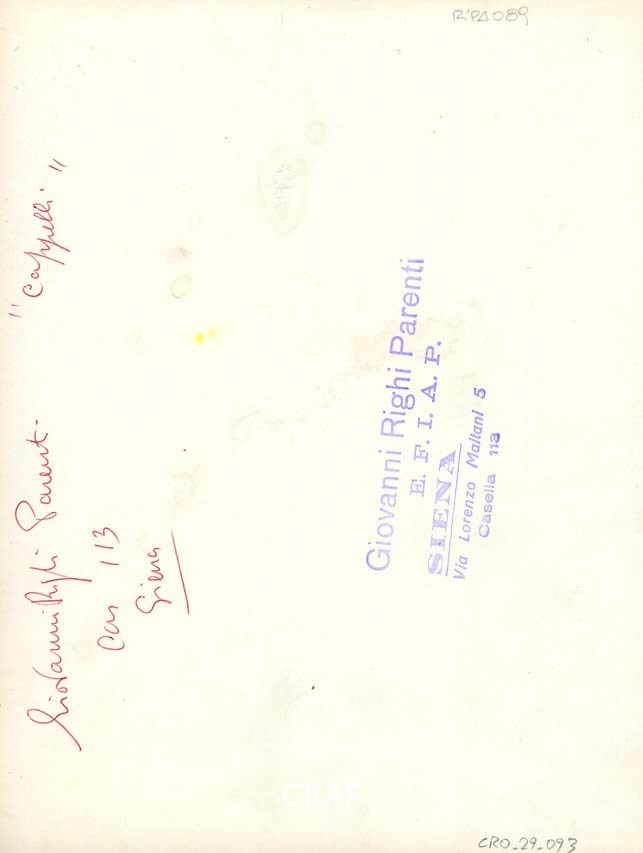 RiPA089
"Cappelli"
Giovanni Righi Parenti
Cas 113
Siena
Giovanni Righi Parenti
E. F. I. A. P.
SIENA
Via Lorenzo Maitani 5
Casella 113
CRAF
CRO_29_093